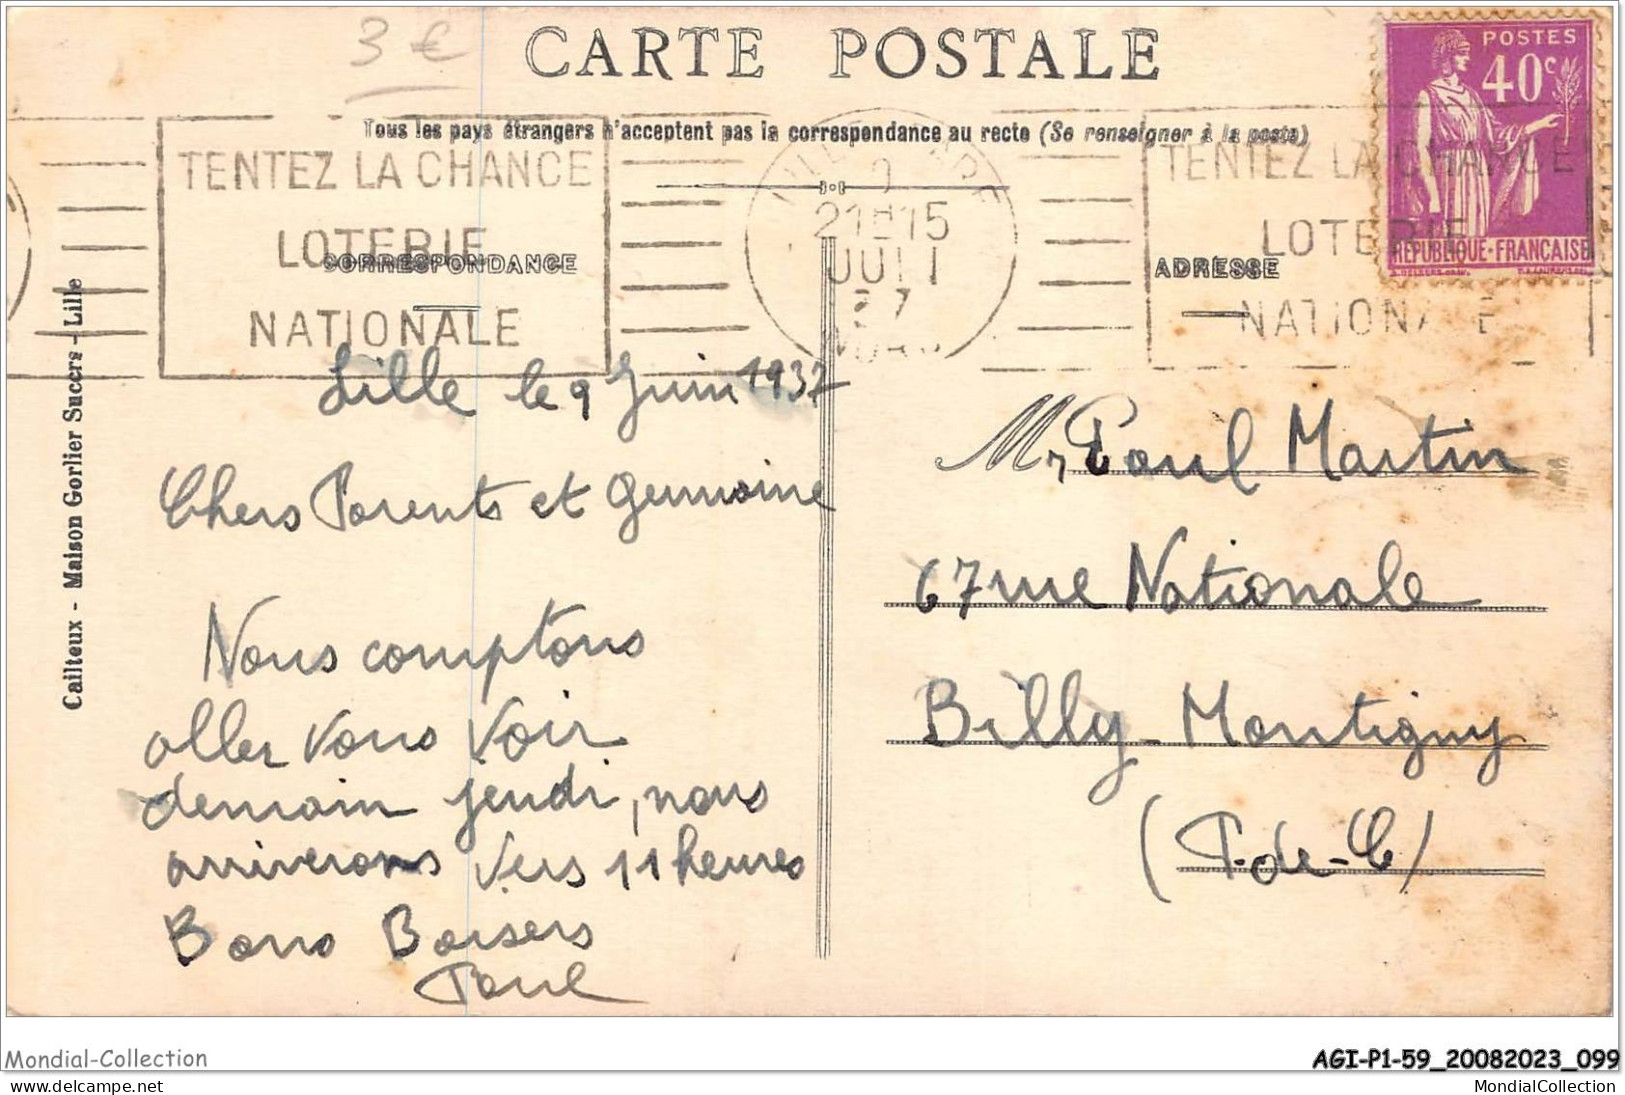 3 €
CARTE POSTALE
Tous les pays étrangers n'acceptent pas la correspondance au recto (Se renseigner à la poste)
TENTEZ LA CHANCE
LOTERIE
NATIONALE
21H15
37
TENTEZ LA CHANCE
LOTERIE
NATIONALE
POSTES
40c
REPUBLIQUE·FRANÇAISE
CORRESPONDANCE
ADRESSE
Cailteux - Maison Gorlier Succrs - Lille
Lille le 9 Juin 1937
Chers Parents et Germaine
Nous comptons
aller vous voir
demain jeudi, nous
arriverons vers 11 heures
Bons Baisers
Paul
Mr Paul Martin
67 rue Nationale
Billy-Montigny
(P-de-C)
Mondial-Collection
AGI-P1-59_20082023_099
www.delcampe.net
MondialCollection